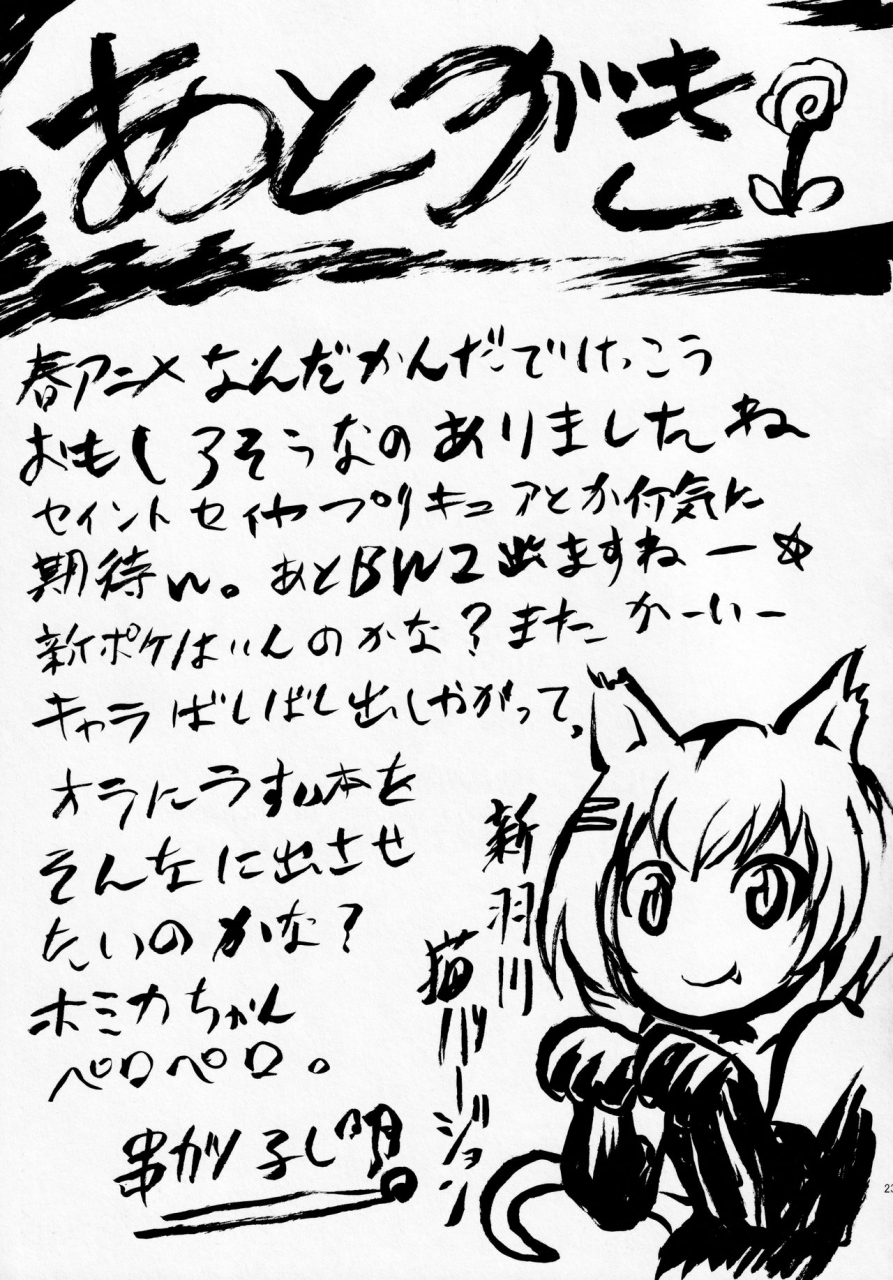 あとがき
春アニメなんだかんだでけっこう
おもしろそうなのありましたね
セイントセイヤプリキュアとか何気に
期待w。あとBW2出ますねー☆
新ポケはいんのかな？またかーいー
キャラばしばし出しやがって。
オラにうすい本を
そんなに出させ
たいのかな？
ホミカちゃん
ペロペロ。
串カツ子し明
新羽川
猫バージョン
23